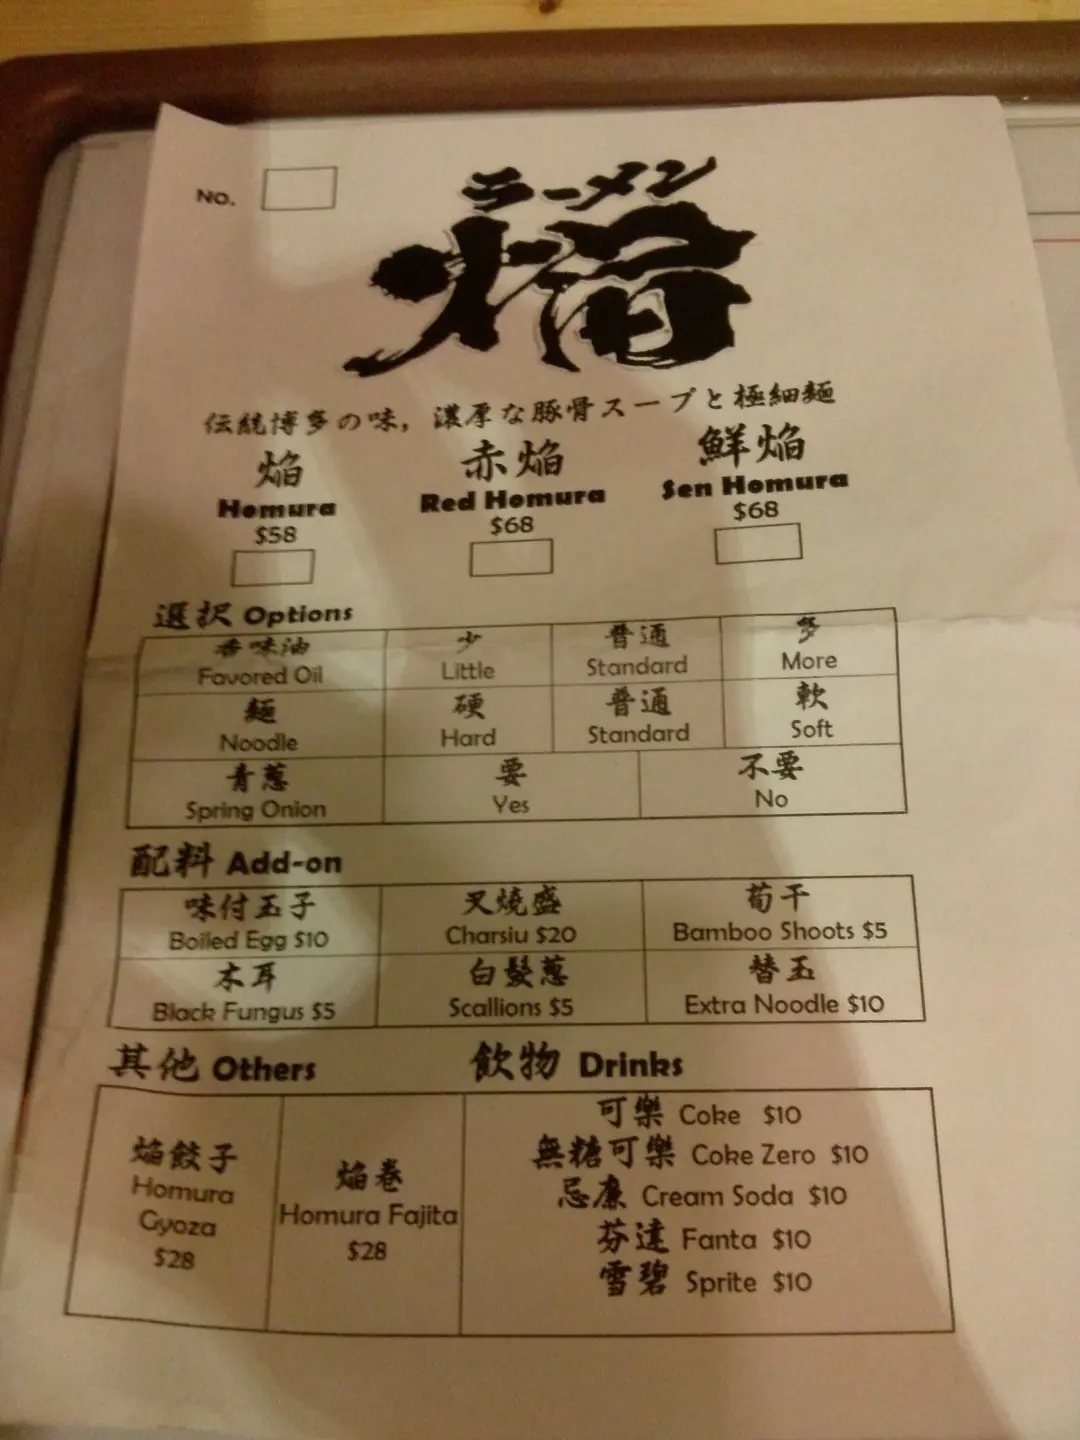 NO.
ラーメン
焔
伝統博多の味，濃厚な豚骨スープと極細麺
焔 赤焔 鮮焔
Homura Red Homura Sen Homura
$58 $68 $68
選択 Options
香味油 少 普通 多
Favored Oil Little Standard More
麺 硬 普通 軟
Noodle Hard Standard Soft
青蔥 要 不要
Spring Onion Yes No
配料 Add-on
味付玉子 叉燒盛 荀干
Boiled Egg $10 Charsiu $20 Bamboo Shoots $5
木耳 白髮蔥 替玉
Black Fungus $5 Scallions $5 Extra Noodle $10
其他 Others 飲物 Drinks
焔餃子
Homura
Gyoza
$28
焔卷
Homura Fajita
$28
可樂 Coke $10
無糖可樂 Coke Zero $10
忌廉 Cream Soda $10
芬達 Fanta $10
雪碧 Sprite $10